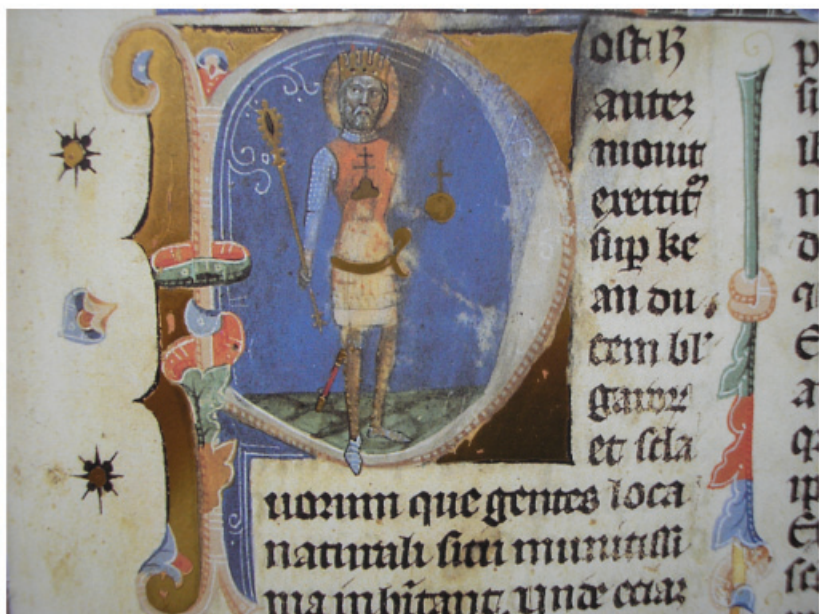 Post h
autez
mouit
exercitū
sup ke
an du
cem bl'
garor
et scla
uorum que gentes loca
naturali situ munitissi
ma inhītant. Unde eciaz